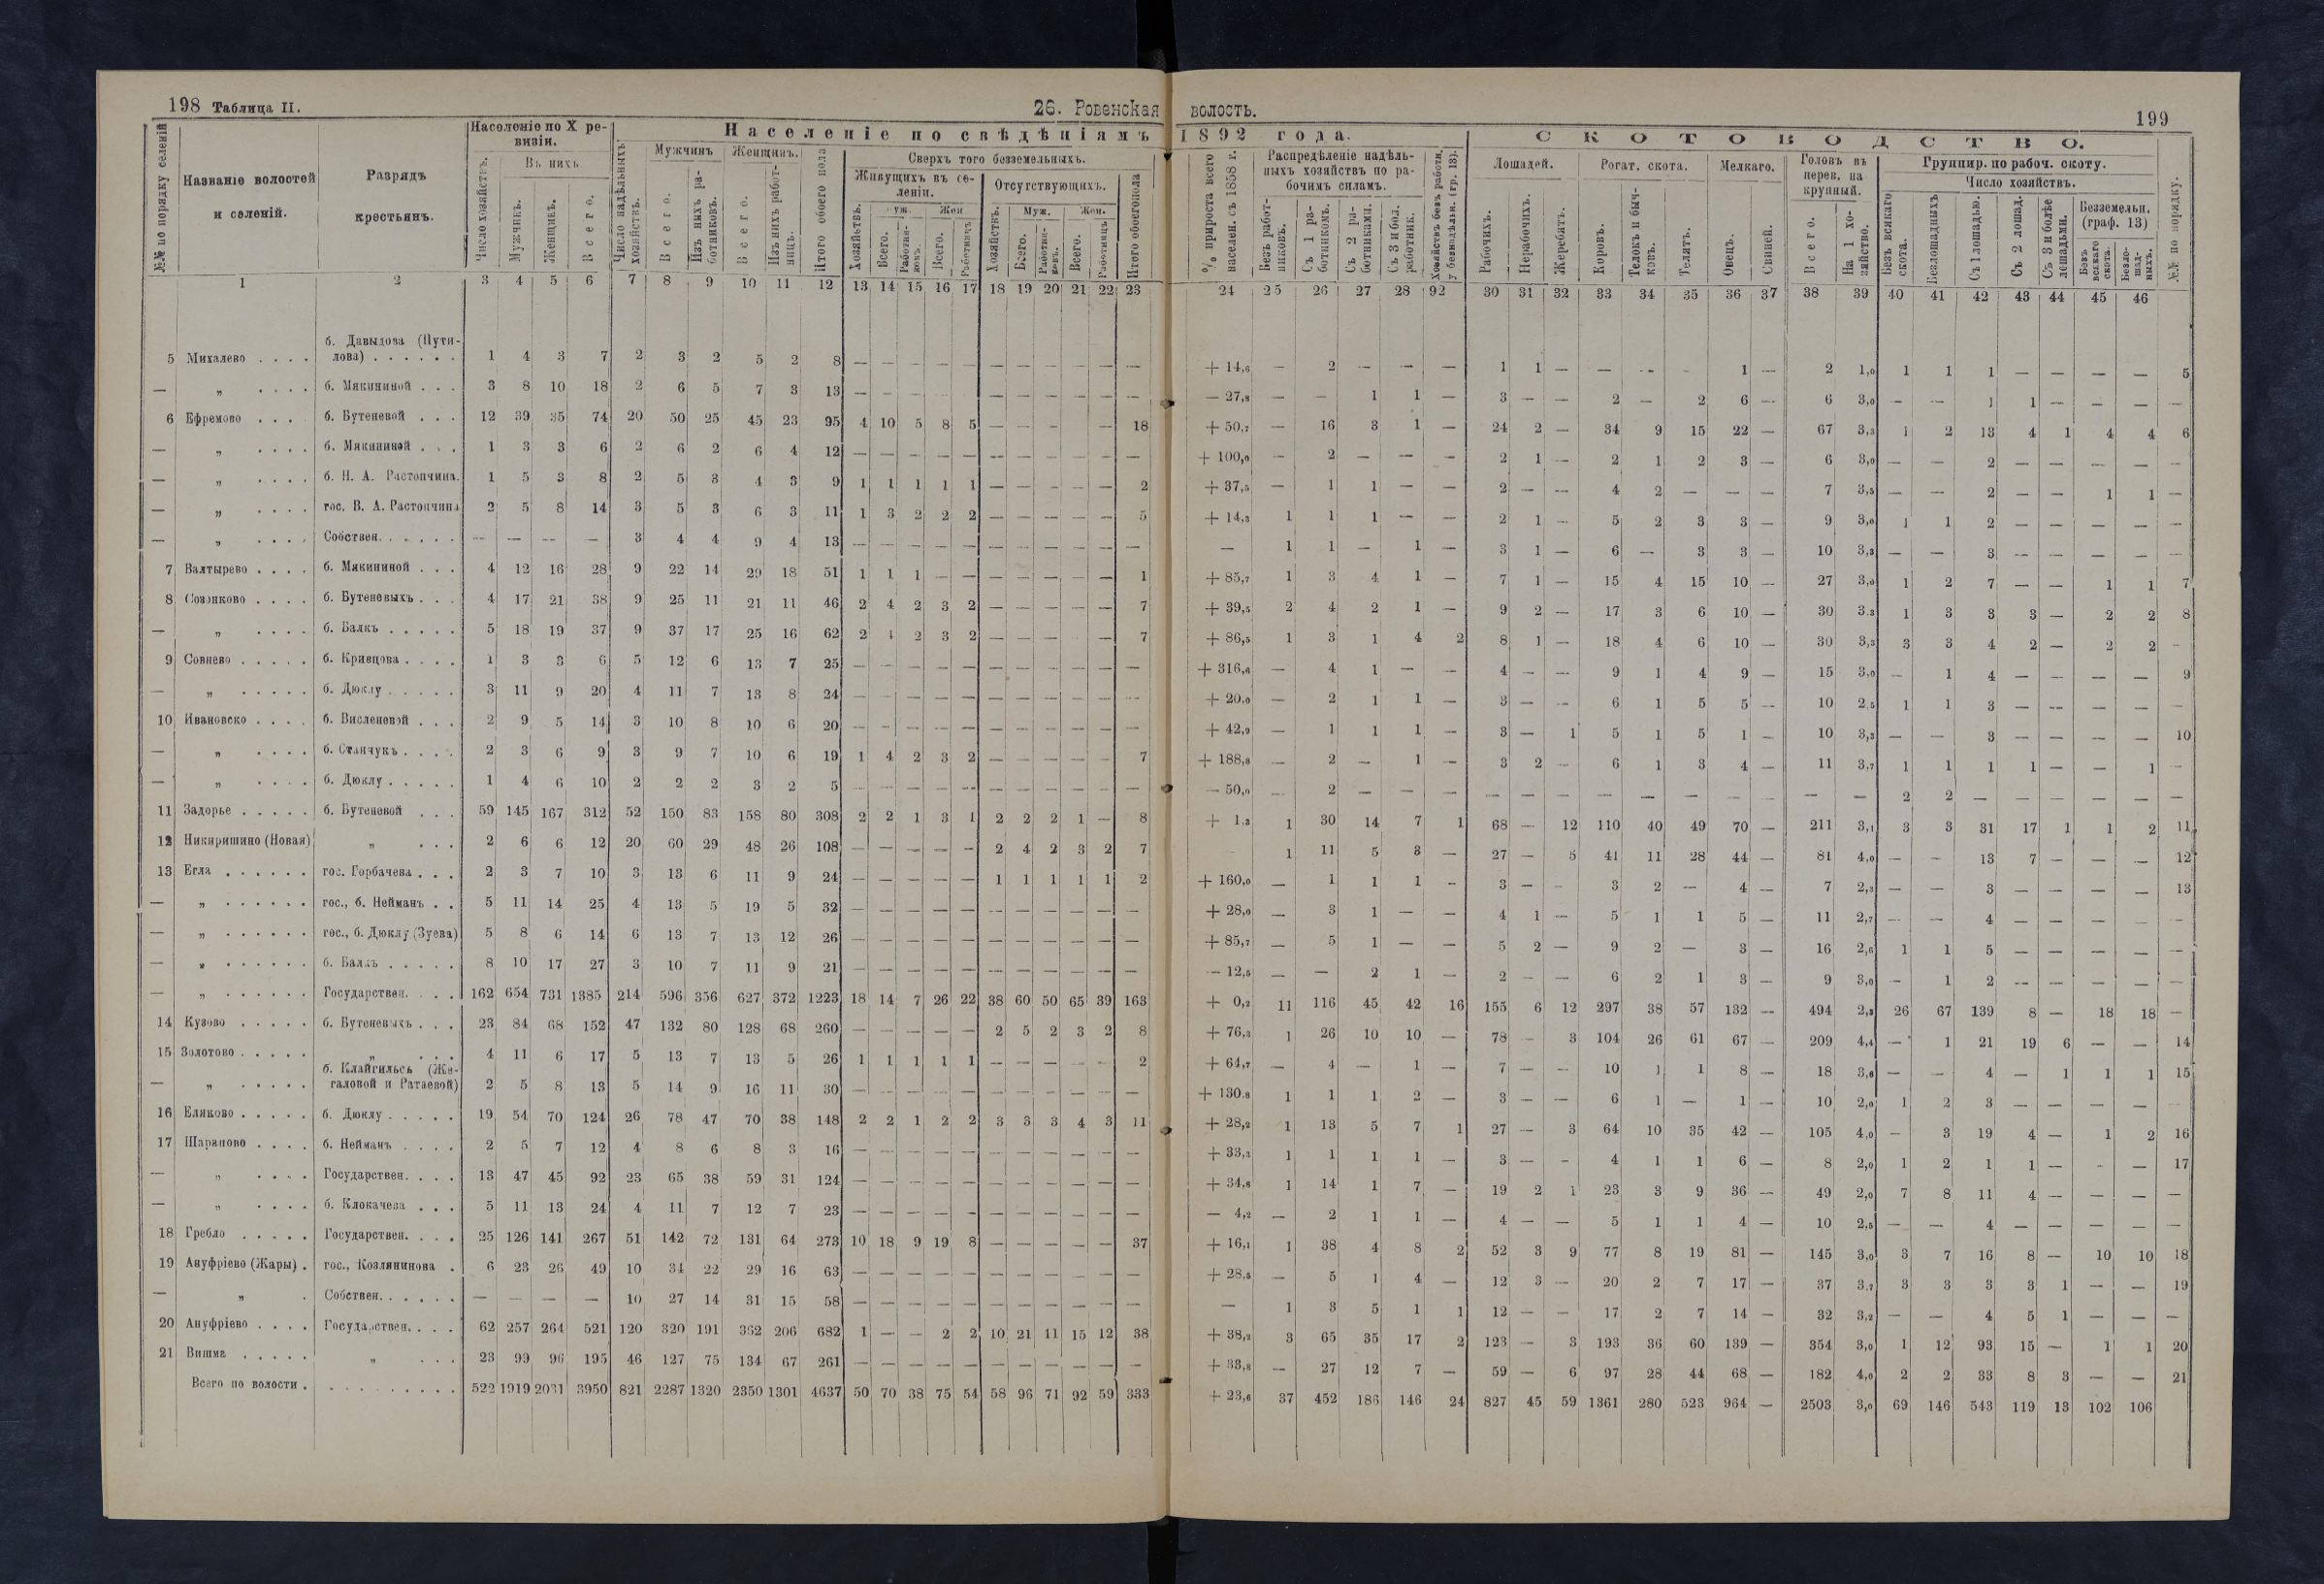 198 Таблица II.
26. Ровенская волость.
199
№№ по порядку селеній
Названіе волостей и селеній.
Разрядъ крестьянъ.
Населеніе по X ревизіи.
Число хозяйствъ.
Въ нихъ
Мужчинъ.
Женщинъ.
Всего.
Населеніе по свѣдѣніямъ 1892 года.
Число надѣльныхъ хозяйствъ.
Мужчинъ
Всего.
Изъ нихъ работниковъ.
Женщинъ.
Всего.
Изъ нихъ работницъ.
Итого обоего пола
Сверхъ того безземельныхъ.
Живущихъ въ селеніи.
Отсутствующихъ.
Итого обоего пола
% прироста всего населен. съ 1858 г.
Распредѣленіе надѣльныхъ хозяйствъ по рабочимъ силамъ.
Безъ работниковъ.
Съ 1 работникомъ.
Съ 2 работниками.
Съ 3 и бол. работник.
Хозяйствъ безъ работн. у безнадѣльн. (гр. 13).
СКОТОВОДСТВО.
Лошадей.
Рабочихъ.
Нерабочихъ.
Жеребятъ.
Рогат. скота.
Коровъ.
Телокъ и бычковъ.
Телятъ.
Мелкаго.
Овецъ.
Свиней.
Головъ въ перев. на крупный.
Всего.
На 1 хозяйство.
Группир. по рабоч. скоту.
Число хозяйствъ.
Безъ всякаго скота.
Безлошадныхъ
Съ 1 лошадью.
Съ 2 лошад.
Съ 3 и болѣе лошадьми.
Безземельн. (граф. 13)
Безъ всякаго скота.
Безлошадныхъ.
№№ по порядку.
1 2 3 4 5 6 7 8 9 10 11 12 13 14 15 16 17 18 19 20 21 22 23 24 25 26 27 28 92 30 31 32 33 34 35 36 37 38 39 40 41 42 43 44 45 46
б. Давыдова (Пути-
5 Михалево . . . . лова) . . . . . . 1 4 3 7 2 3 2 5 2 8 — — — — — — — — — — — + 14,6 — 2 — — — 1 1 — — — - 1 — 2 1,0 1 1 1 — — — — 5
— „ . . . . б. Мякининой . . . 3 8 10 18 2 6 5 7 3 13 — — — — — — — — — — — — 27,8 — - 1 1 — 3 — — 2 — 2 6 — 6 3,0 — — 1 1 — — — —
6 Ефремово . . . б. Бутеневой . . . 12 39 35 74 20 50 25 45 23 95 4 10 5 8 5 — — — — 18 + 50,7 — 16 3 1 — 24 2 — 34 9 15 22 — 67 3,3 1 2 13 4 1 4 4 6
— „ . . . . б. Мякининой . . . 1 3 3 6 2 6 2 6 4 12 — — — — — — — — — — — + 100,0 — 2 — — — 2 1 — 2 1 2 3 — 6 3,0 — — 2 — — — — —
— „ . . . . б. Н. А. Растопчина. 1 5 3 8 2 5 3 4 3 9 1 1 1 1 1 — — — — — 2 + 37,5 — 1 1 — — 2 — — 4 2 — — — 7 3,5 — — 2 — — 1 1 —
— „ . . . . гос. В. А. Растопчина 2 5 8 14 3 5 3 6 3 11 1 3 2 2 2 — — — — — 5 + 14,3 1 1 1 — — 2 1 — 5 2 3 3 — 9 3,0 1 1 2 — — — — —
— „ . . . . Собствен. . . . . . — — — — 3 4 4 9 4 13 — — — — — — — — — — — — 1 1 — 1 — 3 1 — 6 — 3 3 — 10 3,3 — — 3 — — — — —
7 Валтырево . . . . б. Мякининой . . . 4 12 16 28 9 22 14 29 18 51 1 1 1 — — — — — — — 1 + 85,7 1 3 4 1 — 7 1 — 15 4 15 10 — 27 3,0 1 2 7 — — 1 1 7
8 Созонково . . . . б. Бутеневыхъ . . . 4 17 21 38 9 25 11 21 11 46 2 4 2 3 2 — — — — — 7 + 39,5 2 4 2 1 — 9 2 — 17 3 6 10 — 30 3,3 1 3 3 3 — 2 2 8
— „ . . . . б. Балкъ . . . . . 5 18 19 37 9 37 17 25 16 62 2 4 2 3 2 — — — — — 7 + 86,5 1 3 1 4 2 8 1 — 18 4 6 10 — 30 3,3 3 3 4 2 — 2 2 -
9 Совнево . . . . . б. Кривцова . . . . 1 3 3 6 5 12 6 13 7 25 — — — — — — — — — — — + 316,6 — 4 1 — — 4 — — 9 1 4 9 — 15 3,0 — 1 4 — — — — 9
— „ . . . . . б. Дюклу . . . . . 3 11 9 20 4 11 7 13 8 24 — — — — — — — — — — — + 20,0 — 2 1 1 — 3 — — 6 1 5 5 — 10 2,5 1 1 3 — — — —
10 Ивановско . . . . б. Висленевой . . . 2 9 5 14 3 10 8 10 6 20 — — — — — — — — — — — + 42,9 — 1 1 1 — 3 — 1 5 1 5 1 — 10 3,3 — — 3 — — — — 10
— „ . . . . б. Станчукъ . . . . 2 3 6 9 3 9 7 10 6 19 1 4 2 3 2 — — — — — 7 + 188,8 — 2 — 1 — 3 2 - 6 1 3 4 — 11 3,7 1 1 1 1 — — 1 —
— „ . . . . б. Дюклу . . . . . 1 4 6 10 2 2 2 3 2 5 — — — — — — — — — — — — 50,0 — 2 — — — — — — — — — — — — — 2 2 — — — — — —
11 Задорье . . . . . б. Бутеневой . . . 59 145 167 312 52 150 83 158 80 308 2 2 1 3 1 2 2 2 1 — 8 + 1,3 1 30 14 7 1 68 — 12 110 40 49 70 — 211 3,1 3 3 31 17 1 1 2 11
12 Никиришино (Новая) „ . . . 2 6 6 12 20 60 29 48 26 108 — — — — — 2 4 2 3 2 7 1 11 5 3 — 27 — 5 41 11 28 44 — 81 4,0 — — 13 7 — — — 12
13 Егла . . . . . . гос. Горбачева . . . 2 3 7 10 3 13 6 11 9 24 — — — — — 1 1 1 1 1 2 + 160,0 — 1 1 1 - 3 — - 3 2 — 4 — 7 2,3 — — 3 — — — — 13
— „ . . . . . . гос., б. Нейманъ . . 5 11 14 25 4 13 5 19 5 32 — — — — — — — — — — — + 28,0 — 3 1 — — 4 1 — 5 1 1 5 — 11 2,7 — — 4 — — — — —
— „ . . . . . . гос., б. Дюклу (Зуева) 5 8 6 14 6 13 7 13 12 26 — — — — — — — — — — — + 85,7 — 5 1 — — 5 2 — 9 2 — 3 — 16 2,6 1 1 5 — — — — —
— „ . . . . . . б. Балкъ . . . . . 8 10 17 27 3 10 7 11 9 21 — — — — — — — — — — — — 12,5 — — 2 1 — 2 — — 6 2 1 3 — 9 3,0 - 1 2 — — — — —
— „ . . . . . . Государствен. . . . 162 654 731 1385 214 596 356 627 372 1223 18 14 7 26 22 38 60 50 65 39 163 + 0,2 11 116 45 42 16 155 6 12 297 38 57 132 — 494 2,3 26 67 139 8 — 18 18 —
14 Кузово . . . . . б. Бутеневыхъ . . . 23 84 68 152 47 132 80 128 68 260 — — — — — 2 5 2 3 2 8 + 76,3 1 26 10 10 — 78 — 3 104 26 61 67 — 209 4,4 — 1 21 19 6 — — 14
15 Золотово . . . . . „ . . . 4 11 6 17 5 13 7 13 5 26 1 1 1 1 1 — — — — — 2 + 64,7 — 4 — 1 — 7 — — 10 1 1 8 — 18 3,6 — — 4 — 1 1 1 15
б. Клайгильсъ (Же-
— „ . . . . . галовой и Ратаевой) 2 5 8 13 5 14 9 16 11 30 — — — — — — — — — — — + 130,8 1 1 1 2 — 3 — — 6 1 — 1 — 10 2,0 1 2 3 — — — — —
16 Еляково . . . . . б. Дюклу . . . . . 19 54 70 124 26 78 47 70 38 148 2 2 1 2 2 3 3 3 4 3 11 + 28,2 1 13 5 7 1 27 — 3 64 10 35 42 — 105 4,0 - 3 19 4 — 1 2 16
17 Шарапово . . . . б. Нейманъ . . . . 2 5 7 12 4 8 6 8 3 16 — — — — — — — — — — — + 33,3 1 1 1 1 — 3 — - 4 1 1 6 — 8 2,0 1 2 1 1 — - — 17
— „ . . . . Государствен. . . . 13 47 45 92 23 65 38 59 31 124 — — — — — — — — — — — + 34,8 1 14 1 7 — 19 2 1 23 3 9 36 — 49 2,0 7 8 11 4 — — — —
— „ . . . . б. Клокачева . . . 5 11 13 24 4 11 7 12 7 23 — — — — — — — — — — — — 4,2 — 2 1 1 — 4 — — 5 1 1 4 — 10 2,5 — — 4 — — — — —
18 Гребло . . . . . Государствен. . . . 25 126 141 267 51 142 72 131 64 273 10 18 9 19 8 — — — — — 37 + 16,1 1 38 4 8 2 52 3 9 77 8 19 81 — 145 3,0 3 7 16 8 — 10 10 18
19 Ануфріево (Жары) . гос., Козлянинова . 6 23 26 49 10 34 22 29 16 63 — — — — — — — — — — — + 28,5 — 5 1 4 — 12 3 — 20 2 7 17 — 37 3,7 3 3 3 3 1 — — 19
— „ . Собствен. . . . . . — — — — 10 27 14 31 15 58 — — — — — — — — — — — — 1 3 5 1 1 12 — — 17 2 7 14 — 32 3,2 — — 4 5 1 — — —
20 Ануфріево . . . . Государствен. . . . 62 257 264 521 120 320 191 362 206 682 1 — — 2 2 10 21 11 15 12 38 + 38,2 3 65 35 17 2 123 — 3 193 36 60 139 — 354 3,0 1 12 93 15 — 1 1 20
21 Вишма . . . . . „ . . . 23 99 96 195 46 127 75 134 67 261 — — — — — — — — — — — + 33,8 — 27 12 7 — 59 — 6 97 28 44 68 — 182 4,0 2 2 33 8 3 — — 21
Всего по волости . . . . . . . . . . 522 1919 2031 3950 821 2287 1320 2350 1301 4637 50 70 38 75 54 58 96 71 92 59 333 + 23,6 37 452 186 146 24 827 45 59 1361 280 523 964 — 2503 3,0 69 146 543 119 13 102 106